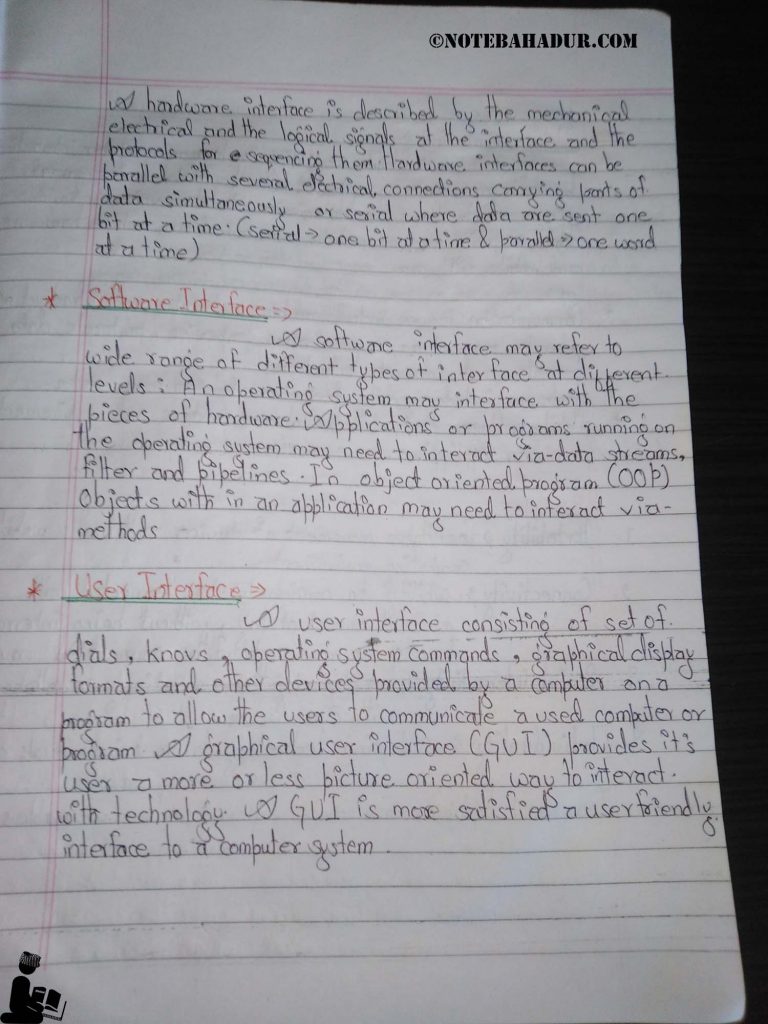 ©NOTEBAHADUR.COM
A hardware interface is described by the mechanical
electrical and the logical signals at the interface and the
protocols for sequencing them. Hardware interfaces can be
parallel with several elechical connections carrying parts of
data simultaneously or serial where data are sent one
bit at a time. (serial → one bit at a time & parallel ⇒ one word
at a time)
* Software Interface ⇒
A software interface may refer to
wide range of different types of interface at different
levels : An operating system may interface with the
pieces of hardware. Applications or programs running on
the operating system may need to interact via-data streams,
filter and pipelines. In object oriented program (OOP)
Objects with in an application may need to interact via-
methods
* User Interface ⇒
A user interface consisting of set of
dials, knovs, operating system commands, graphical display
formats and other devices provided by a computer on a
program to allow the users to communicate a used computer or
program A graphical user interface (GUI) provides it's
user a more or less picture oriented way to interact.
with technology. A GUI is more satisfied a user friendly
interface to a computer system.